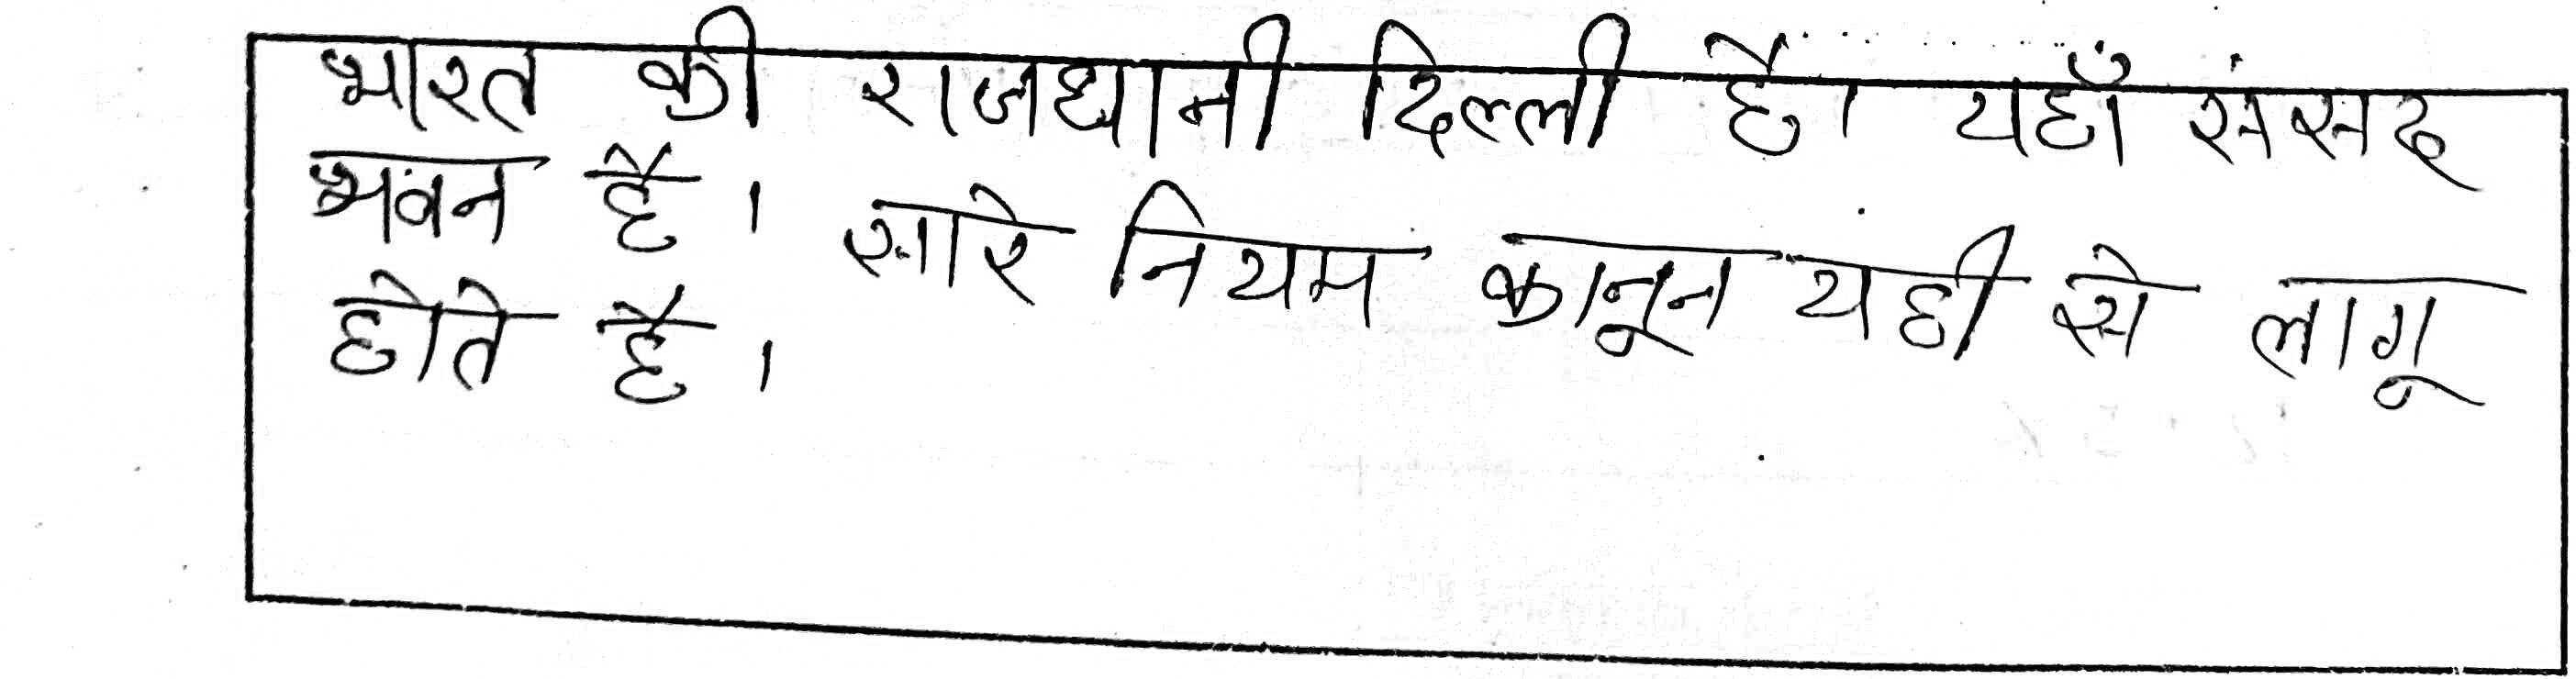 भारत की राजधानी दिल्ली है। यहाँ संसद
भवन है। सारे नियम कानून यही से लागू
होते है।